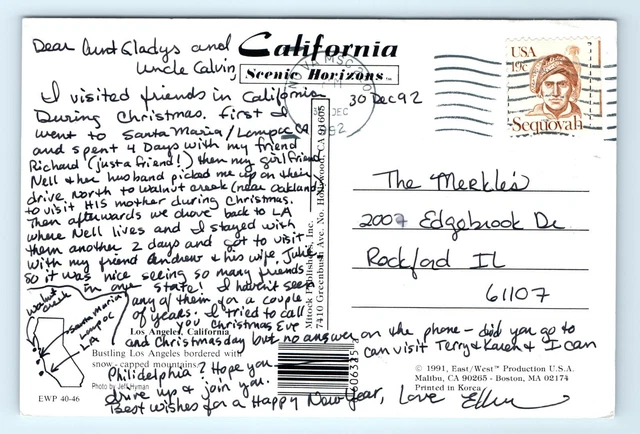 Dear Aunt Gladys and
Uncle Calvin,
California
Scenic Horizons™
30 Dec 92
I visited friends in California
During Christmas. First I
went to Santa Maria/Lompoc CA
and spent 4 Days with my friend
Richard (just a friend!) then my girlfriend
Nell & her husband picked me up on their
drive north to Walnut Creek (near Oakland)
to visit HIS mother during Christmas.
Then afterwards we drove back to LA
where Nell lives and I stayed with
them another 2 days and got to visit
with my friend Andrew & his wife, Julie.
So it was nice seeing so many friends
in one state! I haven't seen
any of them for a couple
of years. I tried to call
you Christmas Eve
and Christmas day but no answer on the phone – did you go to
Philadelphia? Hope you can visit Terry & Karen & I can
drive up & join you.
Best wishes for a Happy New Year, Love Ellen
Walnut Creek
Santa Maria
Lompoc
LA
Los Angeles, California
Bustling Los Angeles bordered with
snow-capped mountains.
Photo by Jeff Hyman
EWP 40-46
Mitock Publishers, Inc.
7410 Greenbush Ave. No. Hollywood, CA 91605
30 DEC
1992
USA
19c
Sequoyah
The Merkle's
2007 Edgebrook Dr
Rockford IL
61107
© 1991, East/West™ Production U.S.A.
Malibu, CA 90265 - Boston, MA 02174
Printed in Korea